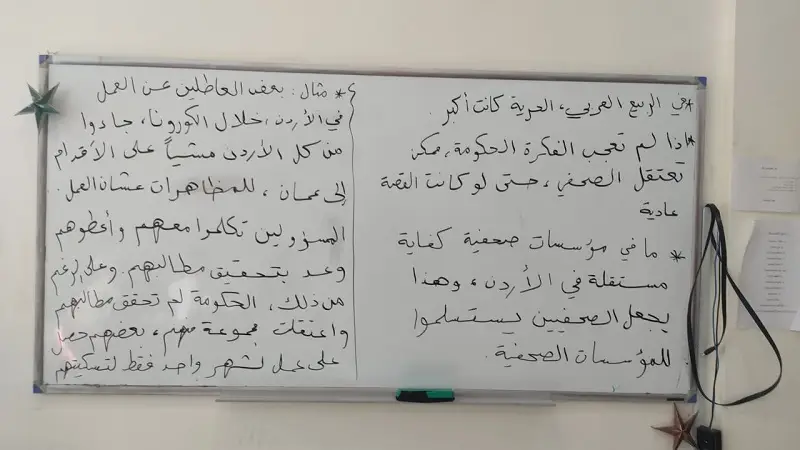 * في الربيع العربي، الحرية كانت أكبر.
* اذا لم تعجب الفكرة الحكومة، ممكن
تعتقل الصحفي، حتى لو كانت القصة
عادية
* ما في مؤسسات صحفية كفاية
مستقلة في الأردن، وهذا
يجعل الصحفيين يستسلموا
للمؤسسات الصحفية.
* مثال: بعض العاطلين عن العمل
في الأردن، خلال الكورونا، جاءوا
من كل الأردن مشياً على الأقدام
إلى عمان، للمظاهرات عشان العمل.
المسؤولين تكلموا معهم وأعطوهم
وعد بتحقيق مطالبهم. وعلى الرغم
من ذلك، الحكومة لم تحقق مطالبهم
واعتقلت مجموعة منهم، بعضهم حصل
على عمل لشهر واحد فقط لتسكيتهم